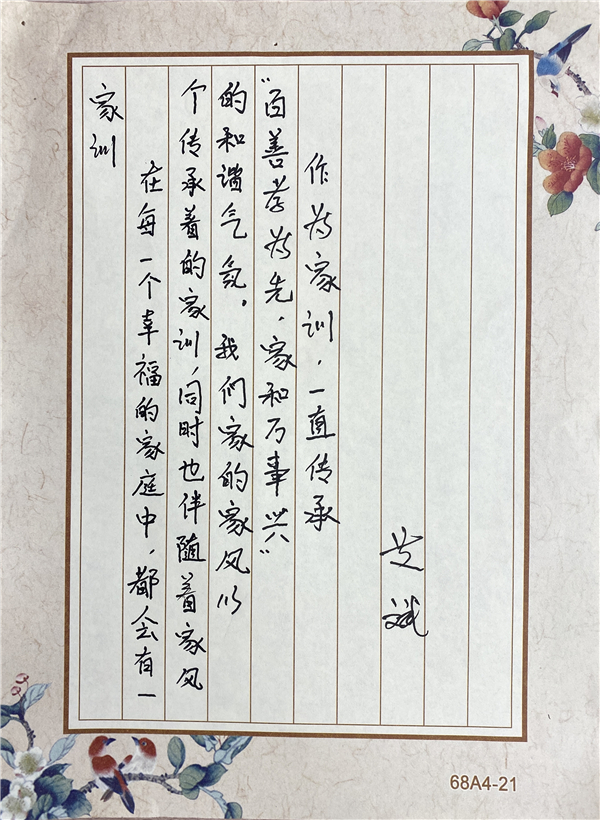 家训
在每一个幸福的家庭中，都会有一
个传承着的家训，同时也伴随着家风
的和谐气氛。我们家的家风以
“百善孝为先，家和万事兴”
作为家训，一直传承
68A4-21